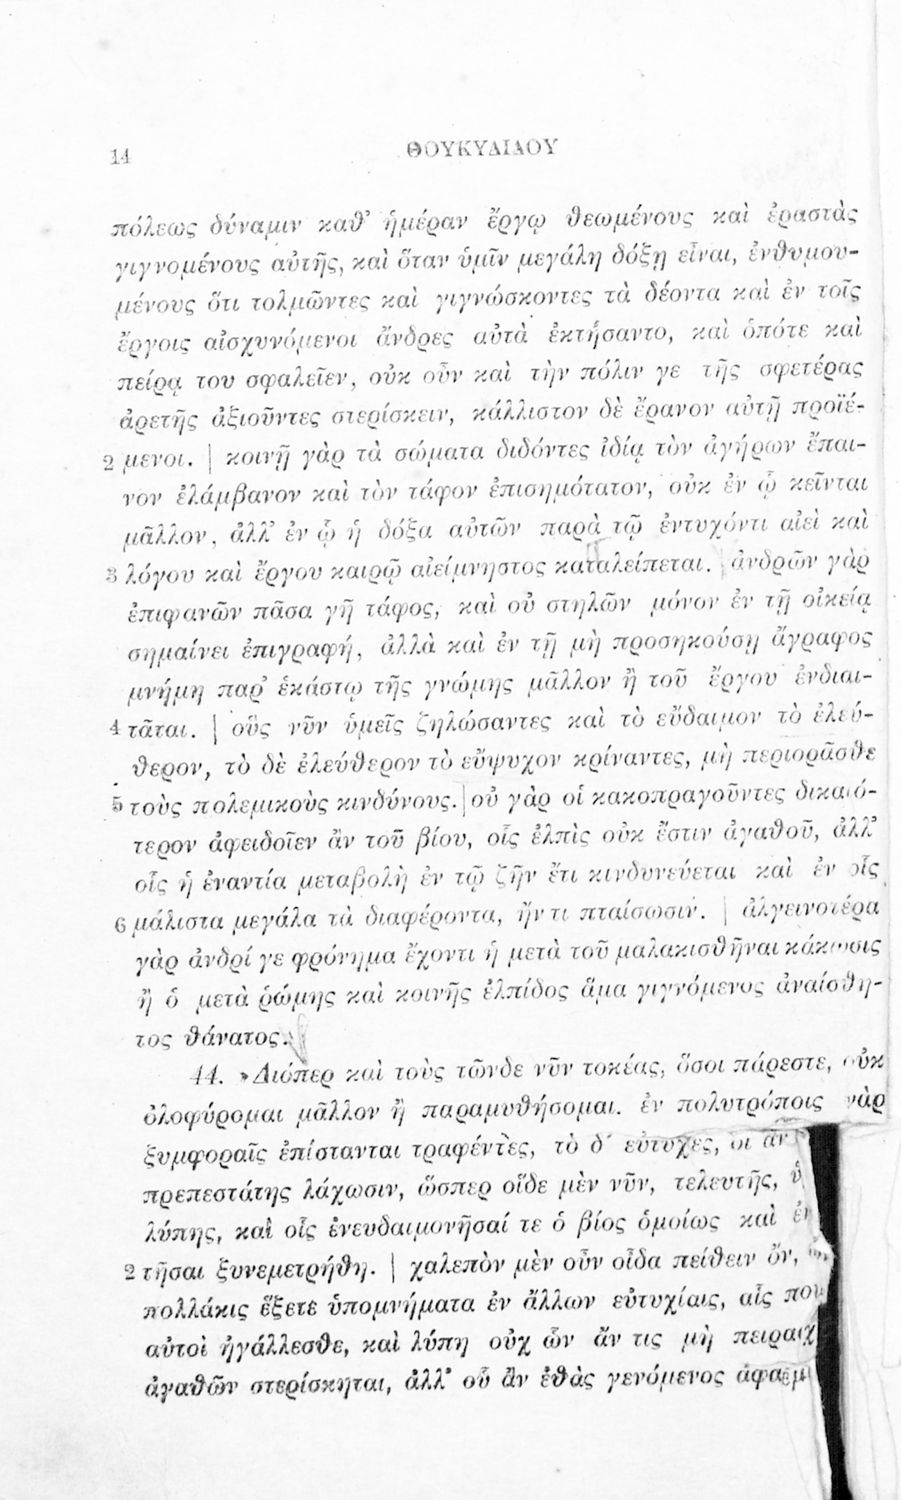 14 ΘΟΥΚΥΔΙΔΟΥ
πόλεως δύναμιν καθ' ἡμέραν ἔργῳ θεωμένους καὶ ἐραστὰς
γιγνομένους αὐτῆς, καὶ ὅταν ὑμῖν μεγάλη δόξῃ εἶναι, ἐνθυμου-
μένους ὅτι τολμῶντες καὶ γιγνώσκοντες τὰ δέοντα καὶ ἐν τοῖς
ἔργοις αἰσχυνόμενοι ἄνδρες αὐτὰ ἐκτήσαντο, καὶ ὁπότε καὶ
πείρᾳ του σφαλεῖεν, οὐκ οὖν καὶ τὴν πόλιν γε τῆς σφετέρας
ἀρετῆς ἀξιοῦντες στερίσκειν, κάλλιστον δὲ ἔρανον αὐτῇ προϊέ-
2 μενοι. | κοινῇ γὰρ τὰ σώματα διδόντες ἰδίᾳ τὸν ἀγήρων ἔπαι-
νον ἐλάμβανον καὶ τὸν τάφον ἐπισημότατον, οὐκ ἐν ᾧ κεῖνται
μᾶλλον, ἀλλ' ἐν ᾧ ἡ δόξα αὐτῶν παρὰ τῷ ἐντυχόντι αἰεὶ καὶ
3 λόγου καὶ ἔργου καιρῷ αἰείμνηστος καταλείπεται. | ἀνδρῶν γὰρ
ἐπιφανῶν πᾶσα γῆ τάφος, καὶ οὐ στηλῶν μόνον ἐν τῇ οἰκείᾳ
σημαίνει ἐπιγραφή, ἀλλὰ καὶ ἐν τῇ μὴ προσηκούσῃ ἄγραφος
μνήμη παρ' ἑκάστῳ τῆς γνώμης μᾶλλον ἢ τοῦ ἔργου ἐνδιαι-
4 τᾶται. | οὓς νῦν ὑμεῖς ζηλώσαντες καὶ τὸ εὔδαιμον τὸ ἐλεύ-
θερον, τὸ δὲ ἐλεύθερον τὸ εὔψυχον κρίναντες, μὴ περιορᾶσθε
5 τοὺς πολεμικοὺς κινδύνους. | οὐ γὰρ οἱ κακοπραγοῦντες δικαιό-
τερον ἀφειδοῖεν ἂν τοῦ βίου, οἷς ἐλπὶς οὐκ ἔστιν ἀγαθοῦ, ἀλλ'
οἷς ἡ ἐναντία μεταβολὴ ἐν τῷ ζῆν ἔτι κινδυνεύεται καὶ ἐν οἷς
6 μάλιστα μεγάλα τὰ διαφέροντα, ἤν τι πταίσωσιν. | ἀλγεινοτέρα
γὰρ ἀνδρί γε φρόνημα ἔχοντι ἡ μετὰ τοῦ μαλακισθῆναι κάκωσις
ἢ ὁ μετὰ ῥώμης καὶ κοινῆς ἐλπίδος ἅμα γιγνόμενος ἀναίσθη-
τος θάνατος.
44. »Διόπερ καὶ τοὺς τῶνδε νῦν τοκέας, ὅσοι πάρεστε, οὐκ
ὀλοφύρομαι μᾶλλον ἢ παραμυθήσομαι. ἐν πολυτρόποις γὰρ
ξυμφοραῖς ἐπίστανται τραφέντες, τὸ δ' εὐτυχές, οἳ ἂν
πρεπεστάτης λάχωσιν, ὥσπερ οἵδε μὲν νῦν, τελευτῆς,
λύπης, καὶ οἷς ἐνευδαιμονῆσαί τε ὁ βίος ὁμοίως καὶ
2 τῆσαι ξυνεμετρήθη. | χαλεπὸν μὲν οὖν οἶδα πείθειν ὄν,
πολλάκις ἕξετε ὑπομνήματα ἐν ἄλλων εὐτυχίαις, αἷς
αὐτοὶ ἠγάλλεσθε, καὶ λύπη οὐχ ὧν ἄν τις μὴ
ἀγαθῶν στερίσκηται, ἀλλ' οὗ ἂν ἐθὰς γενόμενος